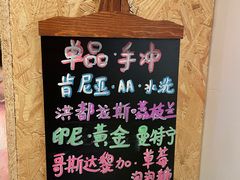 单品·手冲
肯尼亚·AA·水洗
洪都拉斯·荔枝兰
印尼·黄金曼特宁
哥斯达黎加·草莓